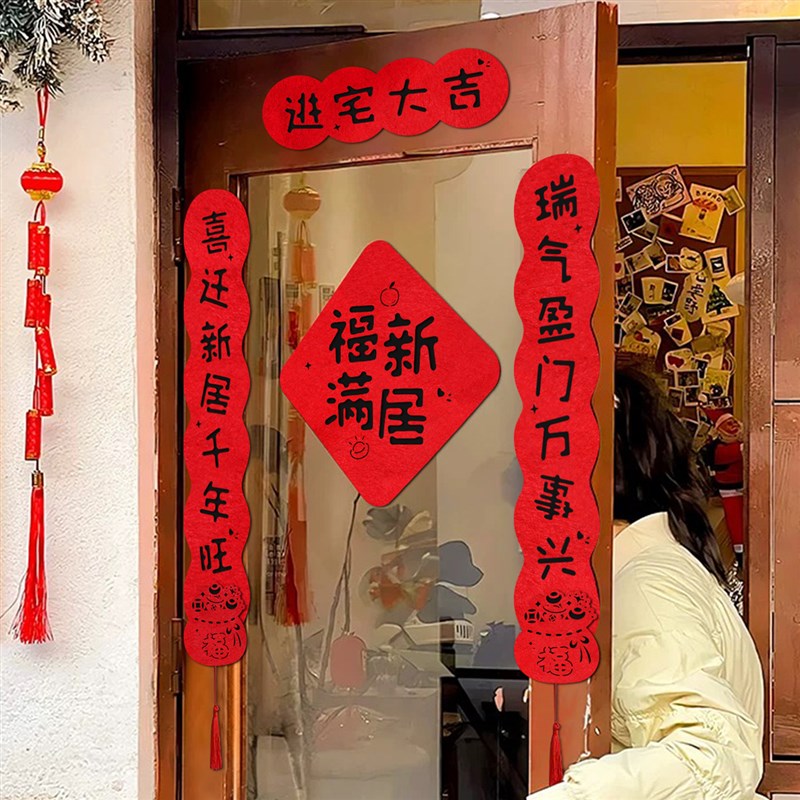 进宅大吉
喜迁新居千年旺
福
新居
福满
瑞气盈门万事兴
福